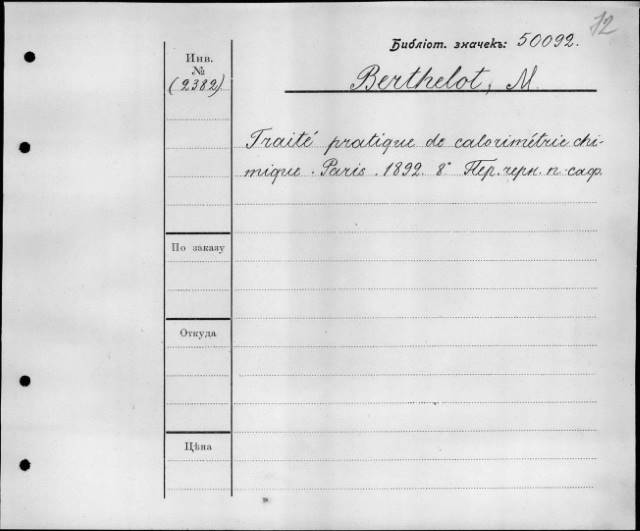 12
Библіот. значекъ: 50092.
Инв.
№
(2382)
Berthelot, M.
Traité pratique de calorimétrie chi-
mique. Paris. 1892. 8° Пер. черн. п. саф.
По заказу
Откуда
Цѣна